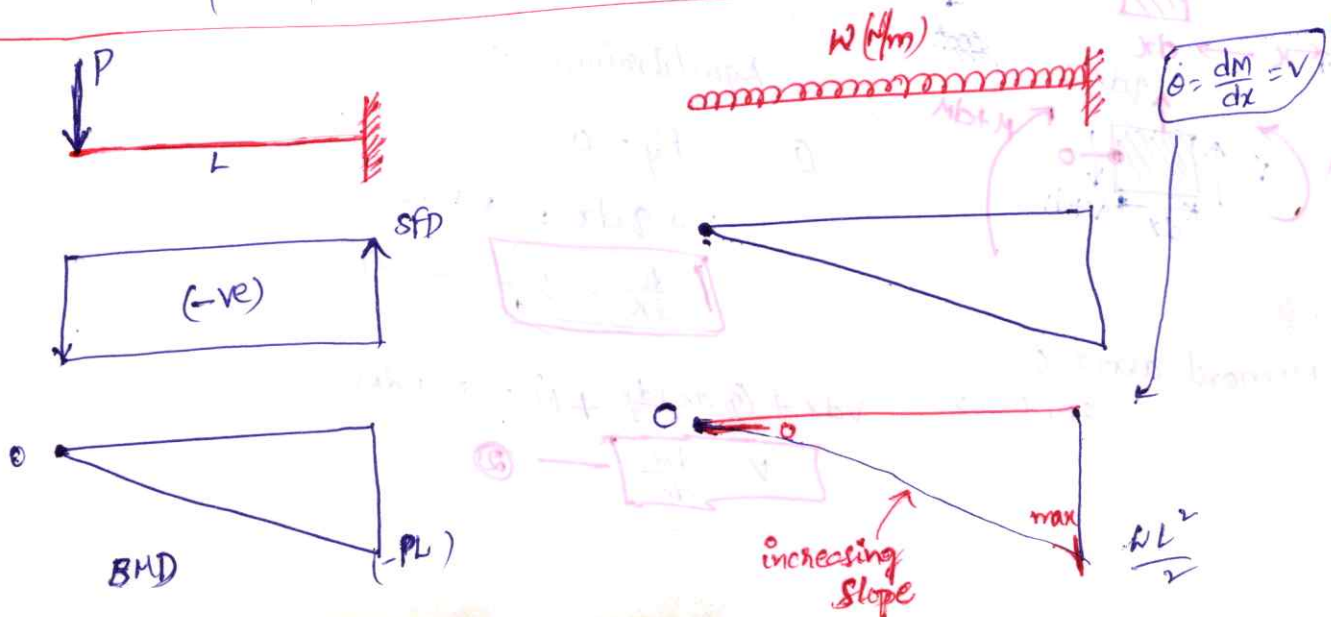 P
L
SFD
(-ve)
0
BMD
(-PL)
W (N/m)
θ = dM/dx = V
0
0
increasing
Slope
max
WL²/2